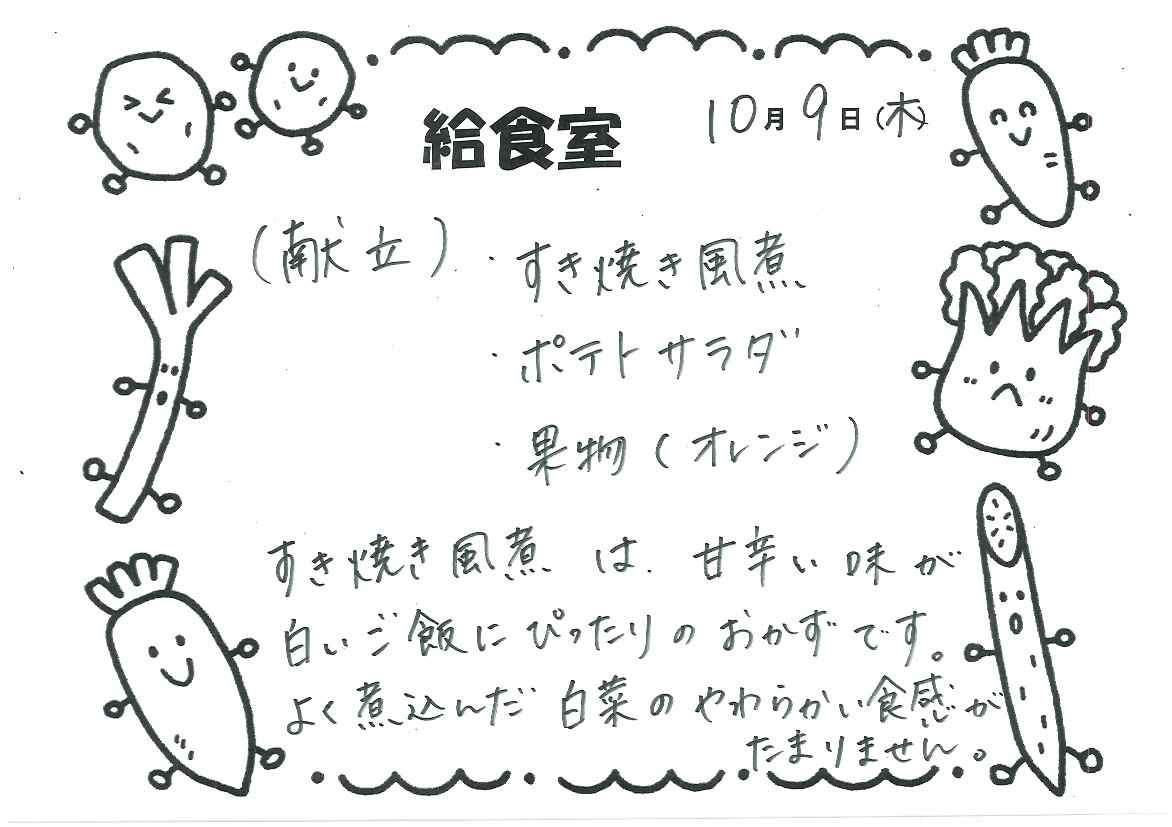 給食室
10月9日(木)
(献立)・すき焼き風煮
・ポテトサラダ
・果物(オレンジ)
すき焼き風煮は、甘辛い味が
白いご飯にぴったりのおかずです。
よく煮込んだ白菜のやわらかい食感が
たまりません。